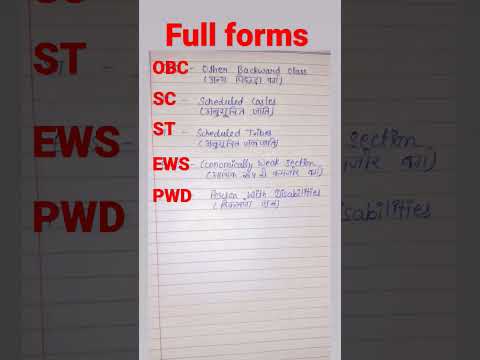 Full forms
OBC - Other Backward Class
(अन्य पिछड़ा वर्ग)
SC - Scheduled Castes
(अनुसूचित जाति)
ST - Scheduled Tribes
(अनुसूचित जनजाति)
EWS - Economically Weak Section
(आर्थिक रूप से कमजोर वर्ग)
PWD Person With Disabilities
ST
EWS
PWD
section
isabilities